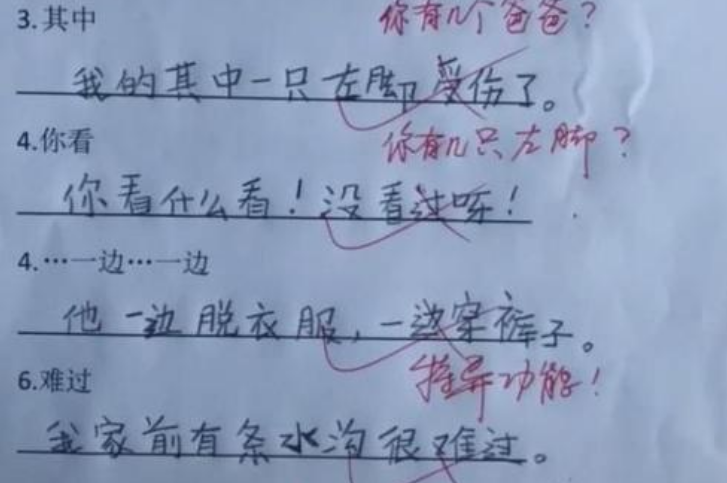 3.其中
你有几个爸爸?
我的其中一只左脚受伤了。
4.你看
你有几只左脚?
你看什么看!没看过呀!
4.…一边…一边
他一边脱衣服,一边穿裤子。
6.难过
特异功能!
我家前有条水沟很难过。